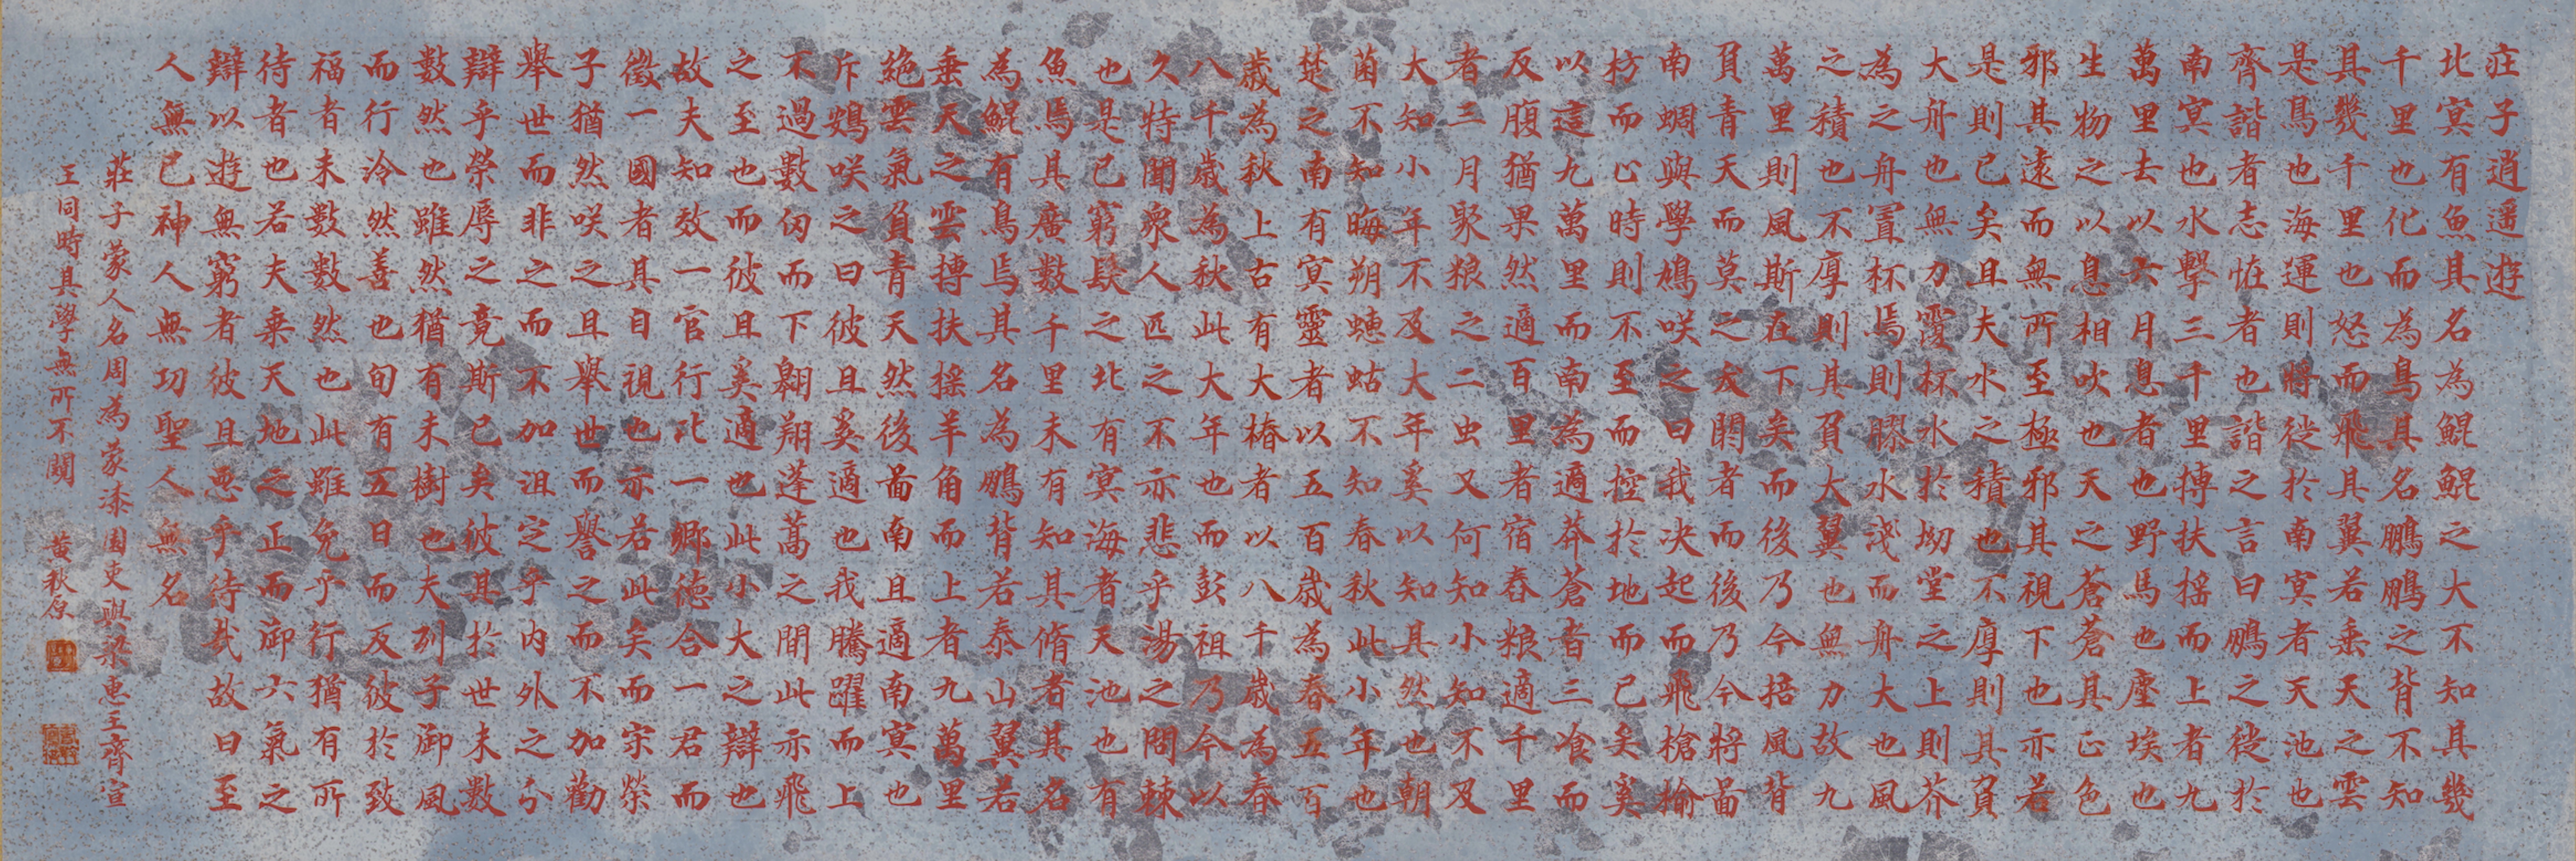 莊子逍遥遊
北冥有魚其名為鯤鯤之大不知其幾
千里也化而為鳥其名鵬鵬之背不知
其幾千里也怒而飛其翼若垂天之雲
是鳥也海運則將徙於南冥者天池也
齊諧者志怪者也諧之言曰鵬之徙於
南冥也水擊三千里摶扶搖而上者九
萬里去以六月息者也野馬也塵埃也
生物之以息相吹也天之蒼蒼其正色
邪其遠而無所至極邪其視下也亦若
是則已矣且夫水之積也不厚則其負
大舟也無力覆杯水於坳堂之上則芥
為之舟置杯焉則膠水淺而舟大也風
之積也不厚則其負大翼也無力故九
萬里則風斯在下矣而後乃今掊風背
負青天而莫之夭閼者而後乃今將啚
南蜩與學鳩咲之曰我决起而飛槍榆
枋而止時則不至而控於地而已矣奚
以這九萬里而南為適莽蒼者三飡而
反腹猶果然適百里者宿舂粮適千里
者三月聚粮之二虫又何知小知不及
大知小年不及大年奚以知其然也朝
菌不知晦朔蟪蛄不知春秋此小年也
楚之南有冥靈者以五百歲為春五百
歲為秋上古有大椿者以八千歲為春
八千歲為秋此大年也而彭祖乃今以
久特聞衆人匹之不亦悲乎湯之問棘
也是已窮髮之北有冥海者天池也有
魚焉其廣數千里未有知其脩者其名
為鯤有鳥焉其名為鵬背若泰山翼若
垂天之雲摶扶搖羊角而上者九萬里
絕雲氣負青天然後啚南且適南冥也
斥鴳咲之曰彼且奚適也我騰躍而上
不過數仞而下翱翔蓬蒿之間此亦飛
之至也而彼且奚適也此小大之辯也
故夫知效一官行比一鄉德合一君而
徵一國者其自視也亦若此矣而宋榮
子猶然咲之且舉世而譽之而不加勸
舉世而非之而不加沮定乎內外之分
辯乎榮辱之竟斯已矣彼其於世未數
數然也雖然猶有未樹也夫列子御風
而行泠然善也旬有五日而反彼於致
福者未數數然也此雖免乎行猶有所
待者也若夫乘天地之正而御六氣之
辯以遊無窮者彼且惡乎待哉故曰至
人無已神人無功聖人無名
莊子蒙人名周為蒙漆園吏與梁惠王齊宣
王同時其學無所不闚 黃秋原